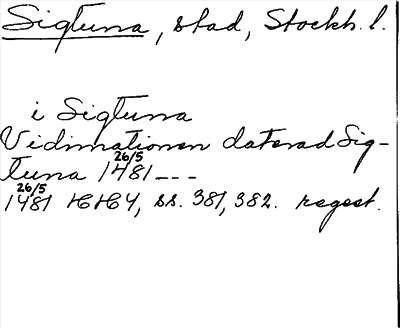 Sigtuna, stad, Stockh. l.
i Sigtuna
Vidimationen daterad Sig-
tuna 26/5 1481---
26/5 1481 HH4, ss. 381, 382. regest.